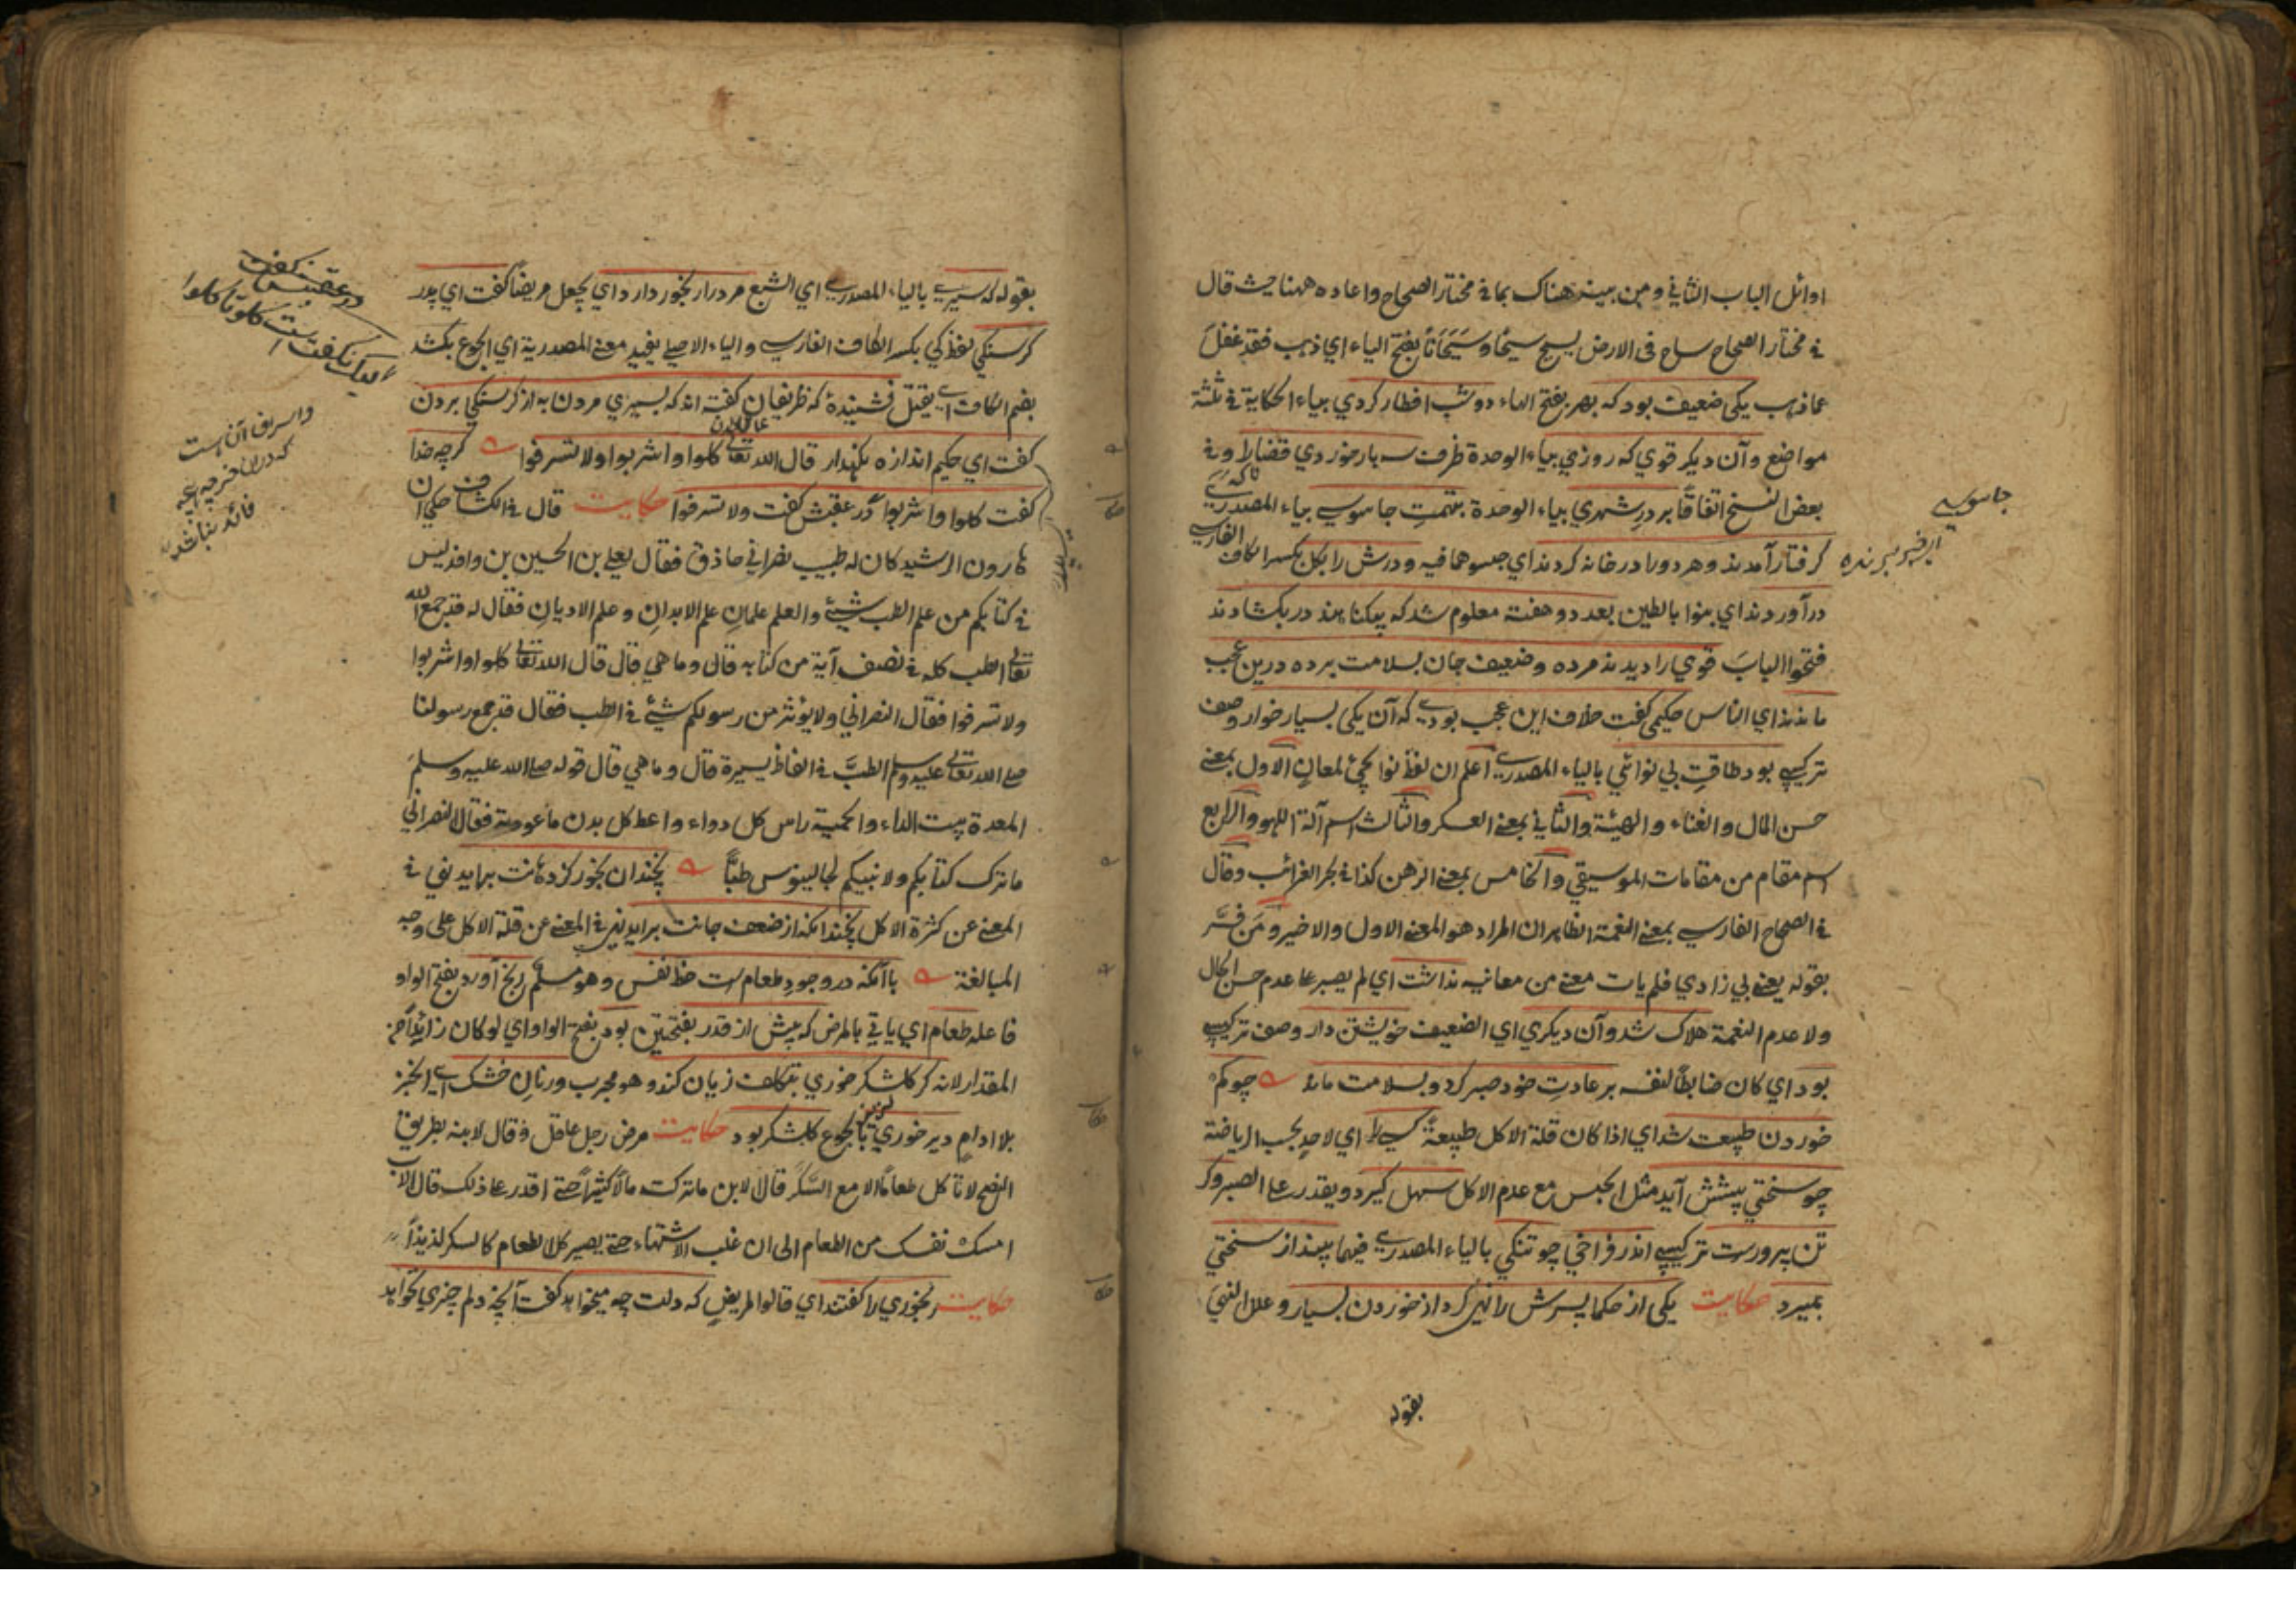 اوائل الباب الثاني ومن بينه هناك بما في مختار الصحاح واعاده ههنا حيث قال
في مختار الصحاح ساح في الارض يسيح سيحا وسيحانا بفتح الياء اي ذهب فقد غفل
عما ذهب يكى ضعيف بود كه بهر بفتح الهاء دو شب افطار كردي بياء الحكاية في ثلثة
مواضع وآن ديكر قوي كه روزي بياء الوحدة ظرف سه بار خوردي قضارا وفي
بعض النسخ اتفاقا بر در شهري بياء الوحدة بتهمت جاسوسي بياء المصدري
تاكه
كرفتار آمدند وهر دورا در خانه كردند اي حبسوهما فيه ودرش را بكل بكسر الكاف
الفارسي
درآوردند اي بنوا بالطين بعد دو هفته معلوم شد كه بيكناهند در بكشادند
فتحوا الباب قوي را ديدند مرده وضعيف جان بسلامت برده درين عجب
ماندند اي الناس حكيمى كفت خلاف اين عجب بودي كه آن يكى بسيار خوار وصف
تركيبي بود طاقت بي نوائي بالياء المصدري اعلم ان لفظ نوا يجئ لمعان الاول بمعنى
حسن المال والغناء والهيئة والثاني بمعنى العسكر والثالث اسم آلة اللهو والرابع
اسم مقام من مقامات الموسيقي والخامس بمعنى الرهن كذا في بحر الغرائب وقال
في الصحاح الفارسي بمعنى النغمة الظاهر ان المراد هو المعنى الاول والاخير ومن فسر
بقوله يعني بي زادي فلم يات معنى من معانيه نداشت اي لم يصبر على عدم حسن الحال
ولا عدم النغمة هلاك شد وآن ديكري اي الضعيف خويشتن دار وصف تركيبي
بود اي كان ضابطا لنفسه بر عادت خود صبر كرد وبسلامت ماند چو كم
خوردن طبيعت شد اي اذا كان قلة الاكل طبيعة كسي را اي لاحد بحسب الرياضة
چو سختي پيشش آيد مثل الحبس مع عدم الاكل سهل كيرد ويقدر على الصبر وكر
تن پرورست تركيبي اندر فراخي چو تنكي بالياء المصدري فيهما بيند از سختي
بميرد حكايت يكى از حكما پسرش را نهي كرد از خوردن بسيار وعلل النهي
بقوله
جاسوسي
بقوله كه سيري بالياء المصدري اي الشبع مردرا رنجور دارد اي يجعل مريضا كفت اي پدر
كرسنكي لفظ كي بكسر الكاف الفارسي والياء الاصلي يفيد معنى المصدرية اي الجوع بكشد
بضم الكاف اي يقتل نشنيدۀ كه ظريفان كفته اند كه بسيري مردن به از كرسنكي بردن
كفت اي حكيم اندازه نكهدار قال الله تعالى كلوا واشربوا ولا تسرفوا كرچه خدا
كفت كلوا واشربوا در عقبش كفت ولا تسرفوا حكايت قال في الكشاف حكي ان
هارون الرشيد كان له طبيب نصراني حاذق فقال لعلي بن الحسين بن واقد ليس
في كتابكم من علم الطب شيئ والعلم علمان علم الابدان وعلم الاديان فقال له قد جمع الله
تعالى الطب كله في نصف آية من كتابه قال وما هي قال قال الله تعالى كلوا واشربوا
ولا تسرفوا فقال النصراني ولا يؤثر من رسولكم شيئ في الطب فقال قد جمع رسولنا
صلى الله تعالى عليه وسلم الطب في الفاظ يسيرة قال وما هي قال قوله صلى الله عليه وسلم
المعدة بيت الداء والحمية راس كل دواء واعط كل بدن ما عودته فقال النصراني
ما ترك كتابكم ولا نبيكم لجالينوس طبا نچندان بخور كز دهانت برايد نهي في
المعنى عن كثرة الاكل نچندانكه از ضعف جانت برايد نهي في المعنى عن قلة الاكل على وجه
المبالغة باآنكه در وجود طعامست حظ نفس وهو مسلم رنج آورد بفتح الواو
فاعله طعام اي ياتي بالمرض كه بيش از قدر بفتحتين بود بفتح الواو اي لو كان زائدا من
المقدار لانه كر كلشكر خوري بتكلف زيان كند وهو مجرب ور نان خشك اي الخبز
بلا ادام دير خوري بالجوع كلشكر بود حكايت مرض رجل عاقل وقال لابنه بطريق
النصح لا تاكل طعاما الا مع السكر قال الابن ما تركت مالا كثيرا حتى اقدر على ذلك قال الاب
امسك نفسك من الطعام الى ان غلب الاشتهاء حتى يصير كل الطعام كالسكر لذيذا
حكايت رنجوري را كفتند اي قالوا لمريض كه دلت چه ميخواهد كفت آنچه دلم چيزي نخواهد
در عقبش كفت
واسراف آن است
فائده نباشد